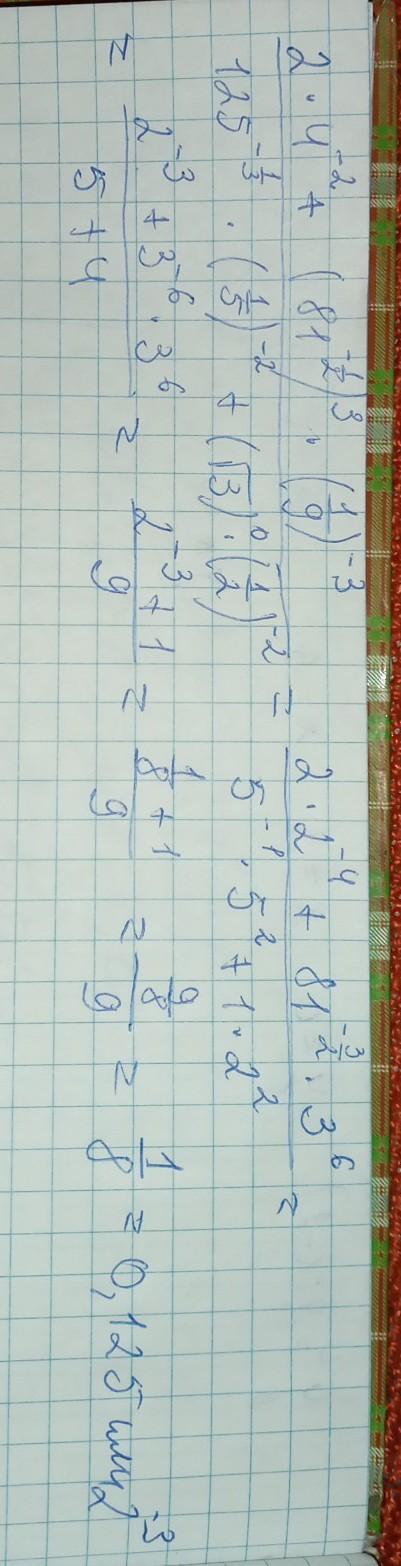 2·4⁻² + (81^(-1/2))³ · (1/9)⁻³ / 125^(-1/3) · (1/5)⁻² + (√3)⁰ · (1/2)⁻² = 2·2⁻⁴ + 81^(-3/2) · 3⁶ / 5⁻¹ · 5² + 1·2² =
= 2⁻³ + 3⁻⁶ · 3⁶ / 5+4 = 2⁻³ + 1 / 9 = 1/8 + 1 / 9 = 9/8 / 9 = 1/8 = 0,125 или 2⁻³